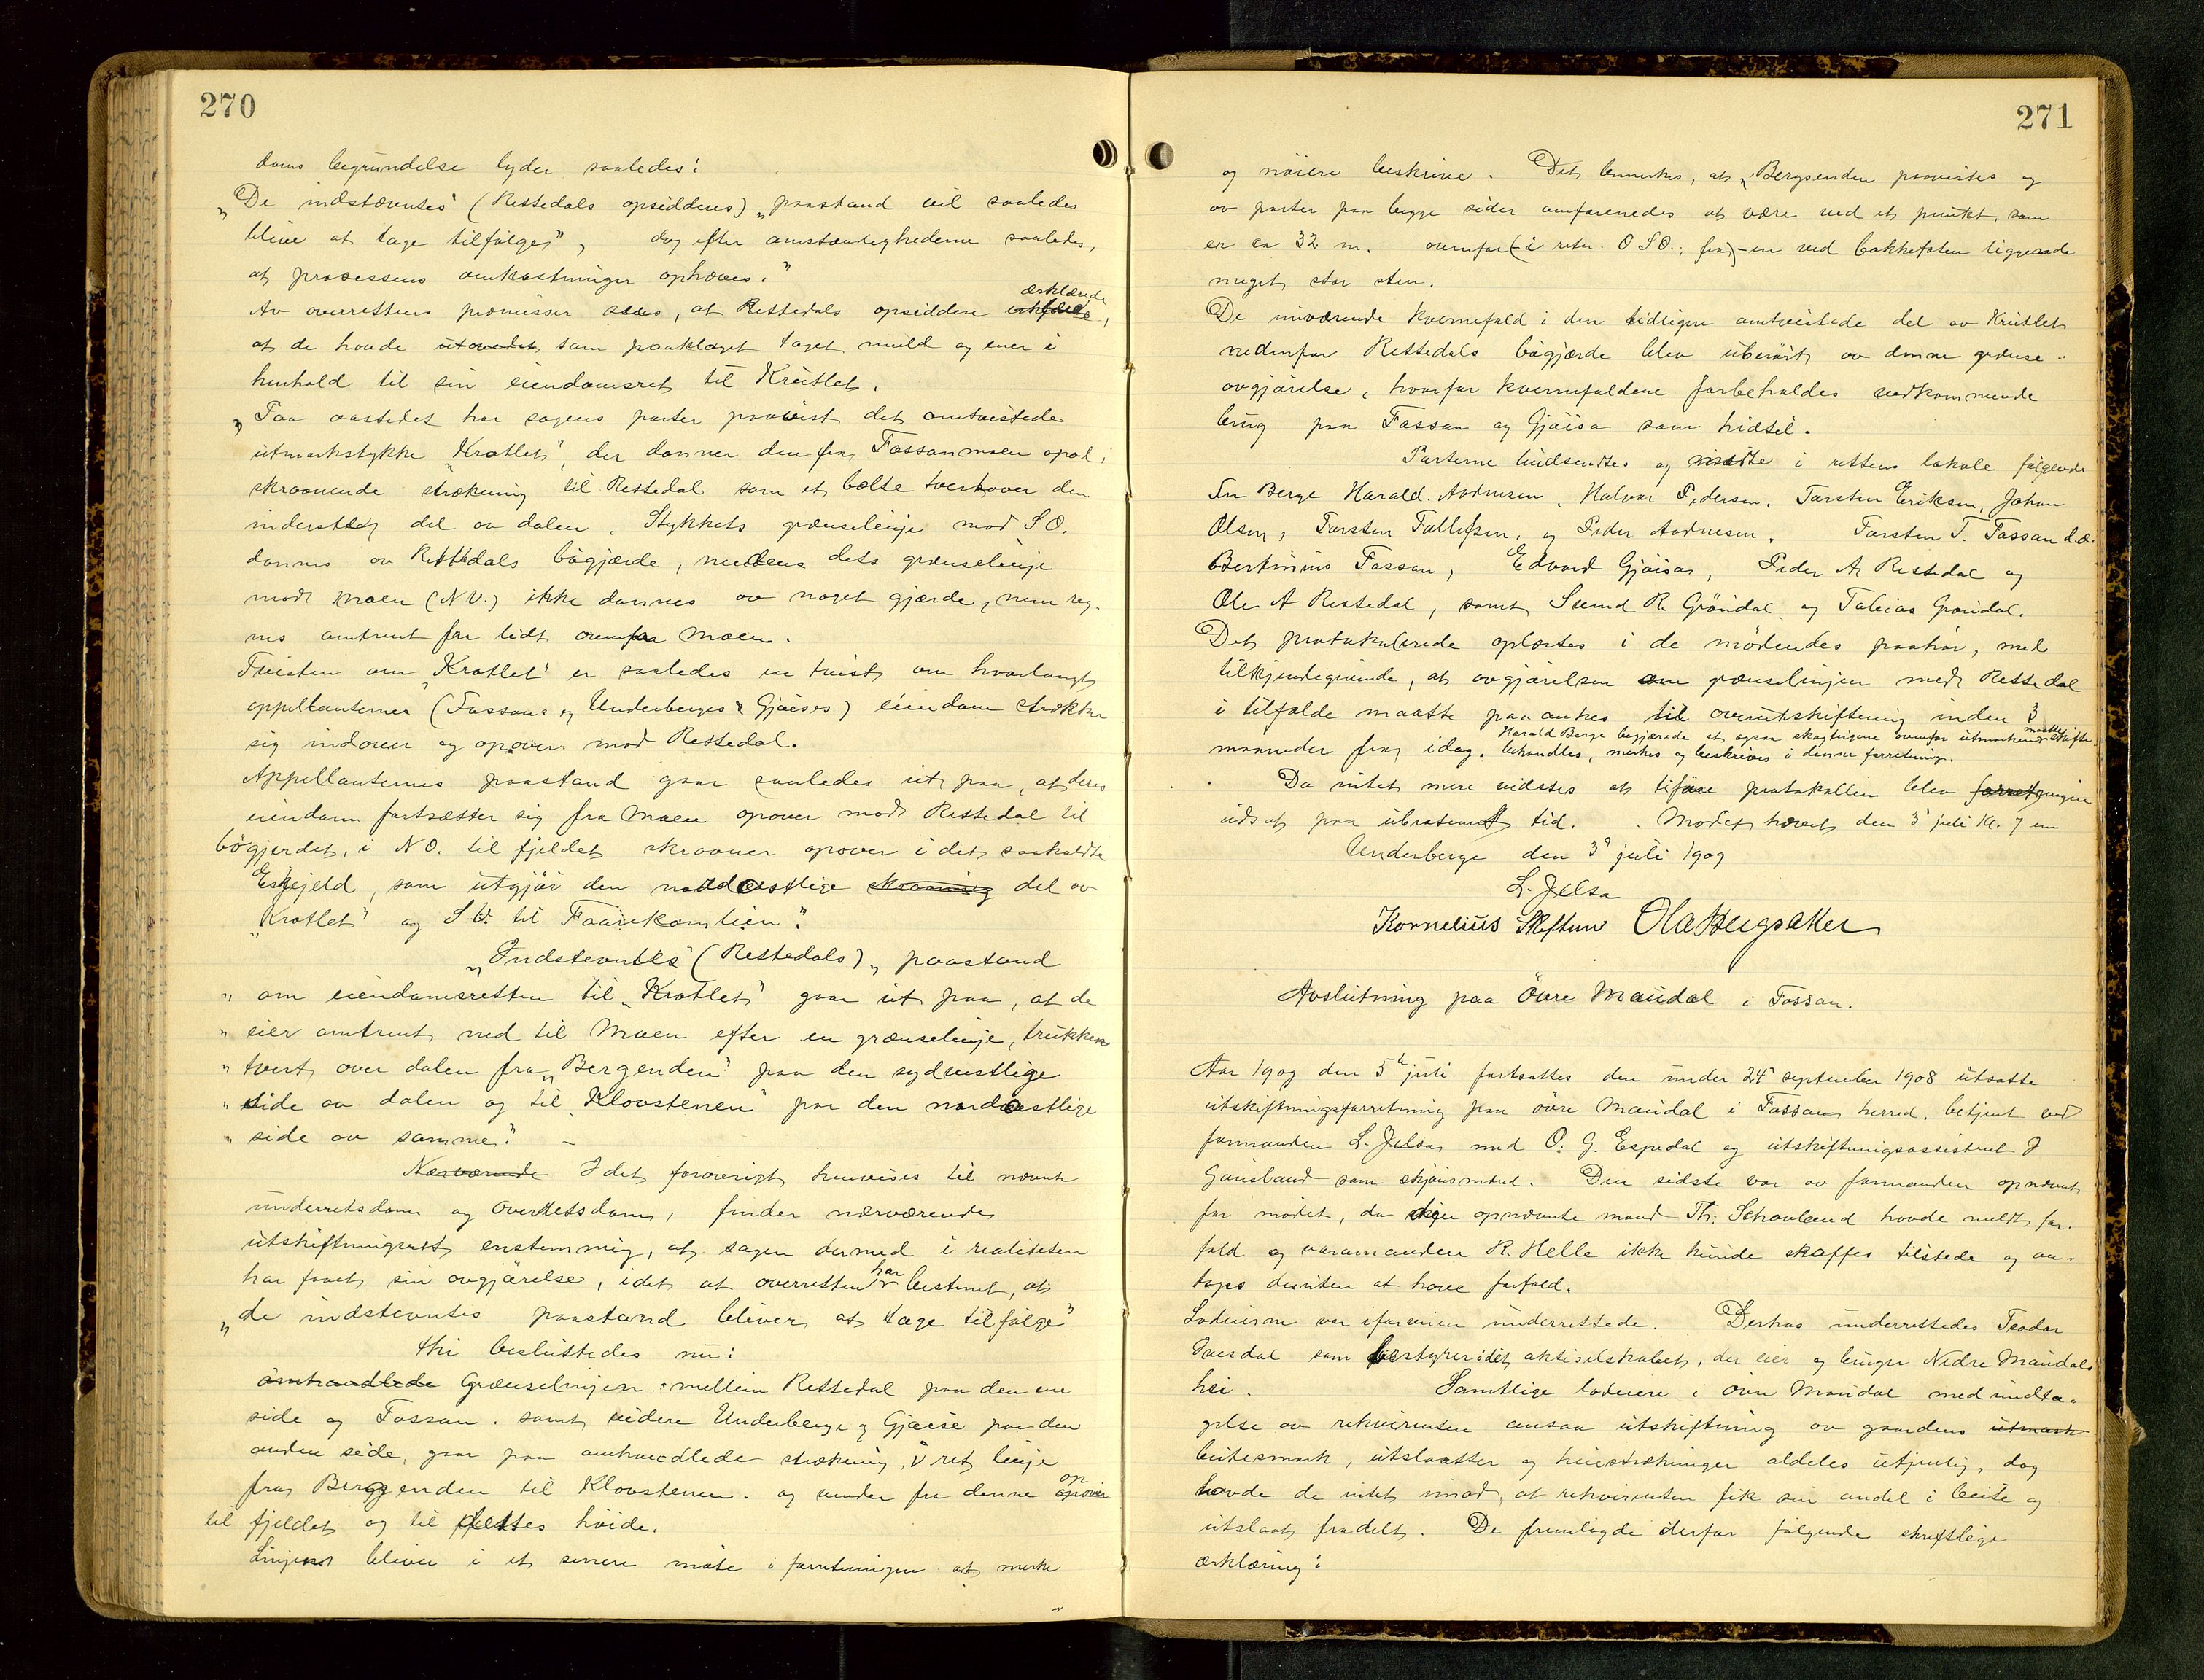 270
doms begrundelse lyder saaledes:
"De indstævntes" (Rettedals opsidderes) "paastand vil saaledes
blive at tage tilfølge", dog efter omstændighederne saaledes,
at processens omkostninger ophæves."
Av overrettens præmisser sees, at Rettedals opsiddere erklærede
at de havde som paaklaget taget muld og ener i
henhold til sin eiendomsret til Krütlet.
"Paa aastedet har sagens parter paavist det omtvistede
utmarkstykke "Krotlet", der danner den fra Fossanmoen opad
skraanende strækning til Rettedal som et bælte tvertover den
inderste del av dalen. Stykkets grænselinje mod S O.
dannes av Rettedals bøgjærde, medens dets grænselinje
mod Moen (N V.) ikke dannes av noget gjærde, men reg-
nes omtrent fra lidt ovenfor Moen.
Tvisten om "Krotlet" er saaledes en tvist om hvorlangt
appellanternes (Fossans og Underberges & Gjøises) eiendom strækker
sig indover og opover mod Rettedal.
Appellanternes paastand gaar saaledes ut paa, at deres
eiendom fortsætter sig fra Moen opover mod Rettedal til
bøgjerdet, i N O. til fjeldet skraaner opover i det saakaldte
Eskjeld, som utgjør den nordøstlige skraaning del av
"Krotlet" og S V. til Faarekomlien".
"Indstevntes" (Rettedals) "paastand
" om eiendomsretten til "Krotlet" gaar ut paa, at de
" eier omtrent ned til Moen efter en grænselinje, trukken
" tvert over dalen fra "Bergenden" paa den sydvestlige
" side av dalen og til "Klovstenen" paa den nordøstlige
" side av samme". –
Nærværende Idet forøvrigt henvises til nævnte
underretsdom og overretsdom, finder nærværende
utskiftningsret enstemmig, at sagen dermed i realiteten
har faaet sin avgjørelse, idet at overretten har bestemt, at
"de indstevntes paastand bliver at tage tilfølge"
thi besluttedes nu:
omhandlede Grænselinjen mellem Rettedal paa den ene
side og Fossan. samt videre Underberge og Gjøise paa den
anden side, gaar paa omhandlede strækning, i ret linje
fra Bergenden til Klovstenen. og videre fra denne op
til fjeldet og til dettes høide.
Linjen bliver i et senere møte i forretningen at merke
271
og nøiere beskrive. Det bemerkes, at "Bergenden paavistes og
av parter paa begge sider omforenedes at være ved et punkt som
er ca 32 m. ovenfor (i retn. O S O., fra) en ved bakkefoten liggende
meget stor sten.
De nuværende kvernefald i den tidligere omtvistede del av Krütlet
nedenfor Rettedals bøgjærde blev uberørt av denne grænse-
avgjørelse, hvorfor kvernefaldene forbeholdes vedkommende
brug paa Fossan og Gjøisa som hidtil.
Parterne hidsendtes og mødte i rettens lokale følgende
fra Berge Harald Andresen, Halvor Pedersen, Torsten Eriksen, Johan
Olsen, Torsten Tollefsen, og Peder Andresen. Torsten T. Fossan
Bertinius Fossan, Edvard Gjøisa, Peder A. Rettedal og
Ole A Rettedal, samt Svend R. Grøndal og Tobias Grøndal.
Det protokolerede oplæstes i de mødendes paahør, med
tilkjendegivende, at avgjørelsen om grænselinjen med Rettedal
i tilfælde maatte paa ankes til overutskiftning inden 3
maaneder fra idag. Harald Berge begjærede at ogsaa skogteigene ovenfor utmarken maatte skifte-
behandles, merkes og beskrives i denne forretning.
Da intet mere vidstes at tilføre protokollen blev forretningen
utsat paa ubestemt tid. Mødet hævet den 3 juli kl. 7 em
Underberge den 3 juli 1909
L. Jelsa
Kornelius Skiftun Ola Haugsaker
Avslutning paa Øvre Maudal i Fossan.
Aar 1909 den 5te juli fortsattes den under 24 september 1908 utsatte
utskiftningsforretning paa øvre Maudal i Fossans herred. betjent ved
formanden L. Jelsa med O. G. Espedal og utskiftningsassistent J
Gausland som skjønsmænd. Den sidste var av formanden opnævnt
for mødet, da den opnævnte mand Th. Schouland havde meldt for-
fald og varamanden R. Helle ikke kunde skaffes tilstede og an-
toges desuten at have forfald.
Lodeierne var iforveien underrettede. Derhos underrettedes Teodor
Ivesdal som bestyrer i det aktieselskabet, der eier og bruger Nedre Maudals
hei. Samtlige lodeiere i øvre Maudal med undta-
gelse av rekvirenten ansaa utskiftning av gaardens utmark
beitesmark, utslaatter og heiestrækninger aldeles utjenlig, dog
havde de intet imod, at rekvirenten fik sin andel i beite og
utslaat fradelt. De fremlagde derfor følgende skriftlige
erklæring: